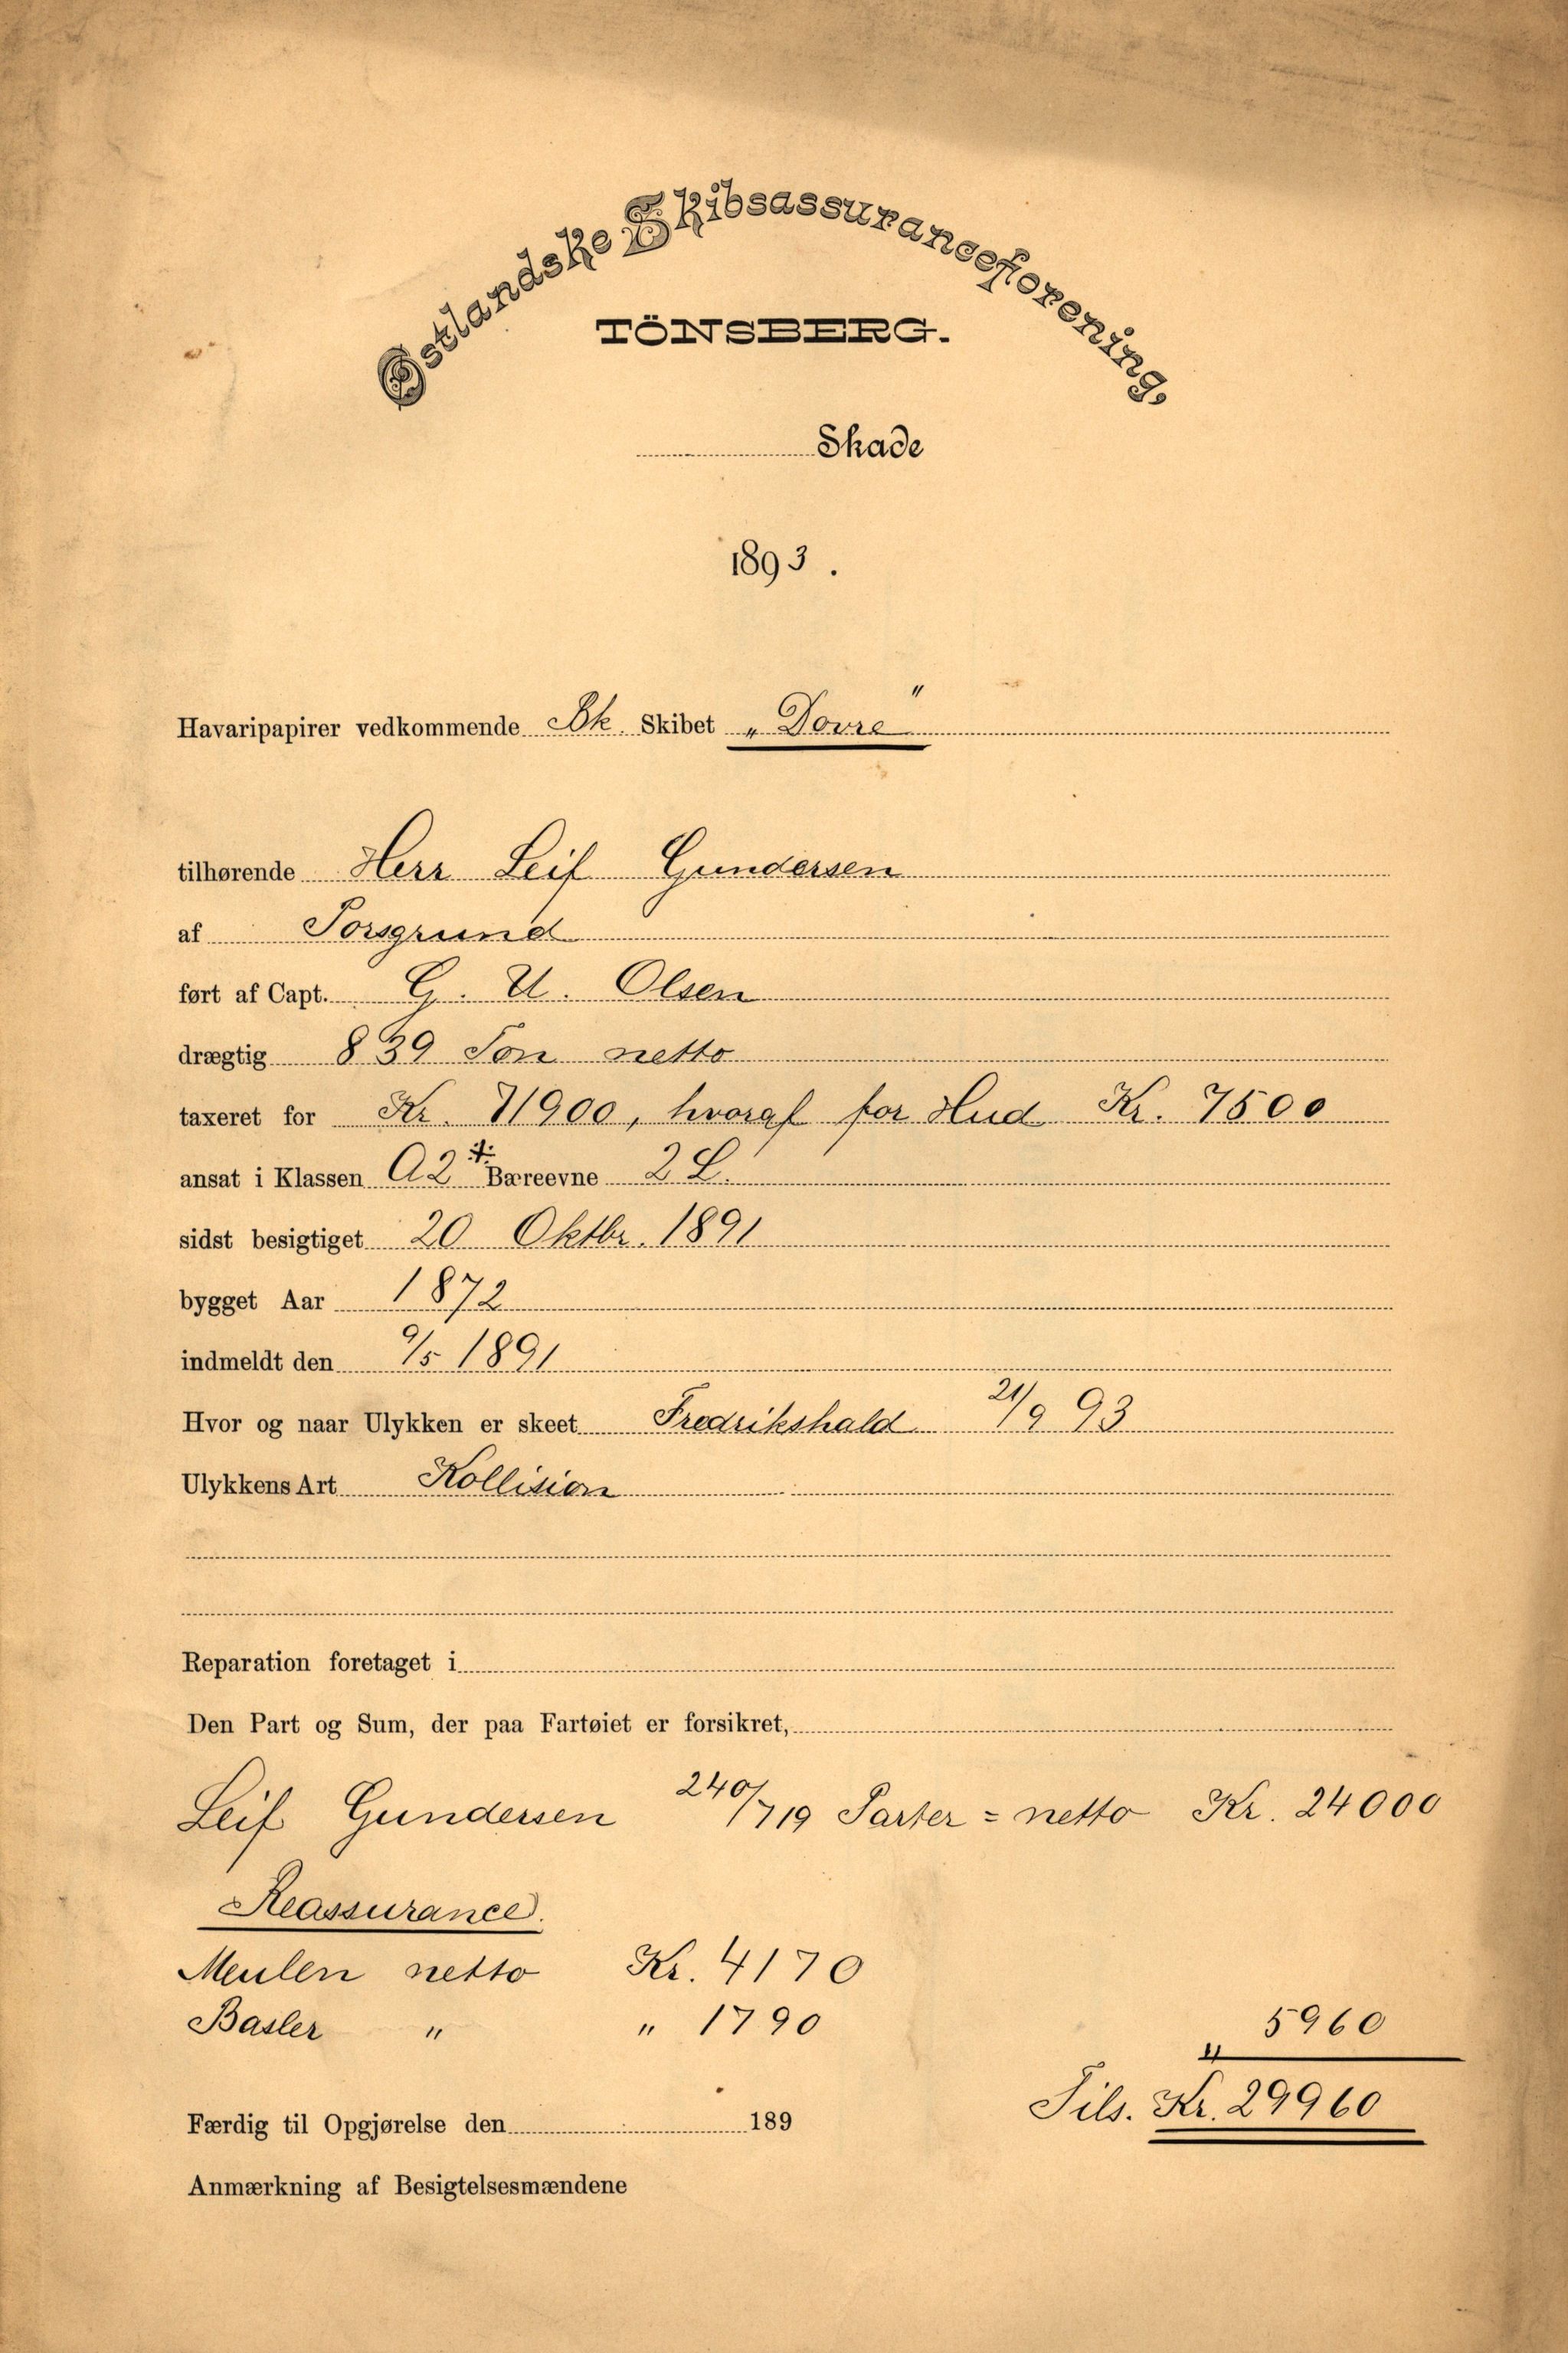 Østlandske Skibsassuranceforening,
TÖNSBERG.
Skade
1893.
Havaripapirer vedkommende Bk. Skibet „Dovre"
tilhørende Herr Leif Gundersen
af Porsgrund
ført af Capt. G. U. Olsen
drægtig 839 Ton netto
taxeret for Kr. 71900, hvoraf for Hud Kr. 7500
ansat i Klassen A2 Bæreevne 2 L.
sidst besigtiget 20 Oktbr. 1891
bygget Aar 1872
indmeldt den 9/5 1891
Hvor og naar Ulykken er skeet Fredrikshald 21/9 93
Ulykkens Art Kollision
Reparation foretaget i
Den Part og Sum, der paa Fartøiet er forsikret,
Leif Gundersen 240/719 Parter = netto Kr. 24000
Reassurance.
Meulen netto Kr. 4170
Basler " " 1790
" 5960
Tils. Kr. 29960
Færdig til Opgjørelse den 189
Anmærkning af Besigtelsesmændene